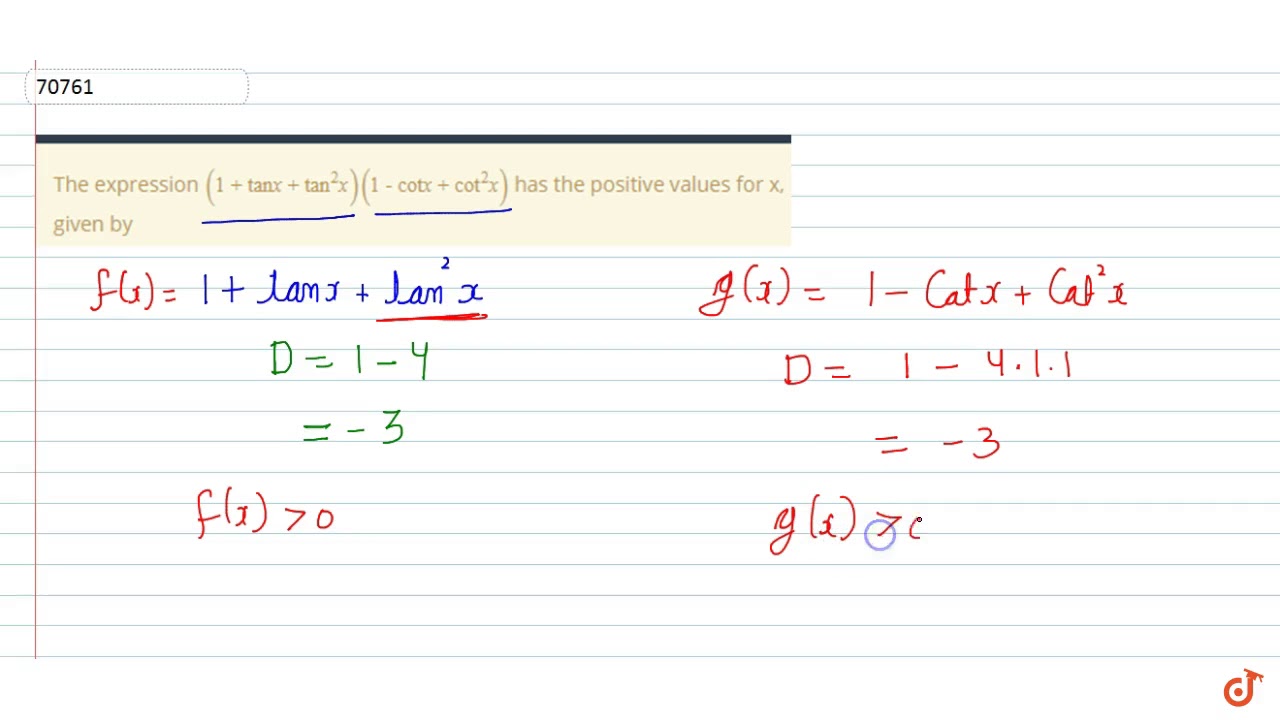 70761
The expression (1 + tanx + tan²x)(1 - cotx + cot²x) has the positive values for x,
given by
f(x) = 1 + tanx + tan²x
g(x) = 1 - Cotx + Cot²x
D = 1 - 4
D = 1 - 4.1.1
= - 3
= - 3
f(x) > 0
g(x) > 0